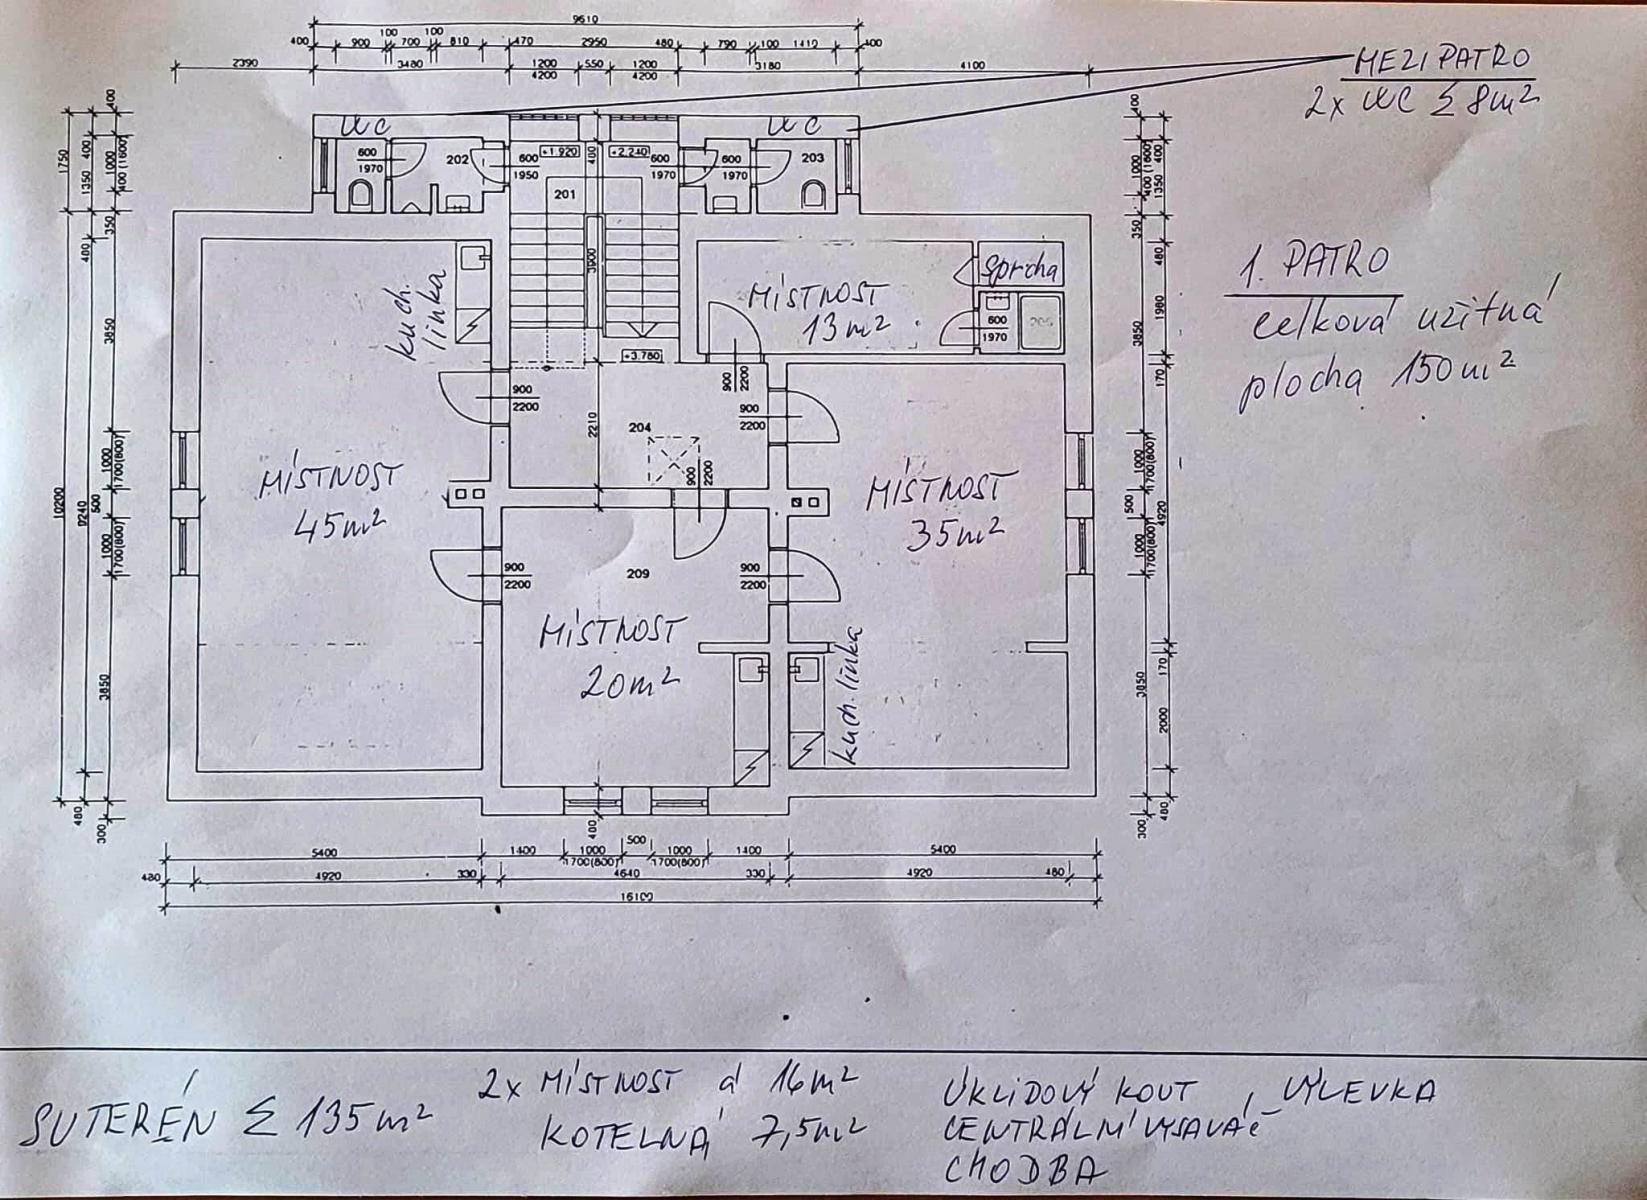 9610
400 900 100 700 100 810 470 2950 480 790 100 1410 400
2390 3480 1200 550 1200 3180 4100
4200 4200
MEZIPATRO
2x WC Σ 8m²
WC
WC
600
1970
202
600
1950
+1.920
+2.240
600
1970
600
1970
203
201
400
3900
kuch.
linka
MÍSTNOST
13m²
sprcha
600
1970
+3.760
900
2200
900
2200
900
2200
204
2210
900
2200
1. PATRO
celková užitná
plocha 150m²
MÍSTNOST
45m²
MÍSTNOST
35m²
900
2200
209
900
2200
MÍSTNOST
20m²
kuch. linka
400
1750
400
1000
400(1600)
1350
350
400
3850
1000
1700(800)
500
1000
1700(800)
10200
9240
3850
480
300
400
1000
400(1600)
400
1350
350
480
1980
3850
170
1000
1700(800)
500
4920
1000
1700(800)
170
3850
2000
480
300
400
5400 1400 1000 500 1000 1400 5400
1700(800) 1700(800)
480 4920 330 4640 330 4920 480
16100
SUTERÉN Σ 135m²
2x MÍSTNOST á 16m²
KOTELNA 7,5m²
ÚKLIDOVÝ KOUT, VÝLEVKA
CENTRÁLNÍ VYSAVAČ
CHODBA